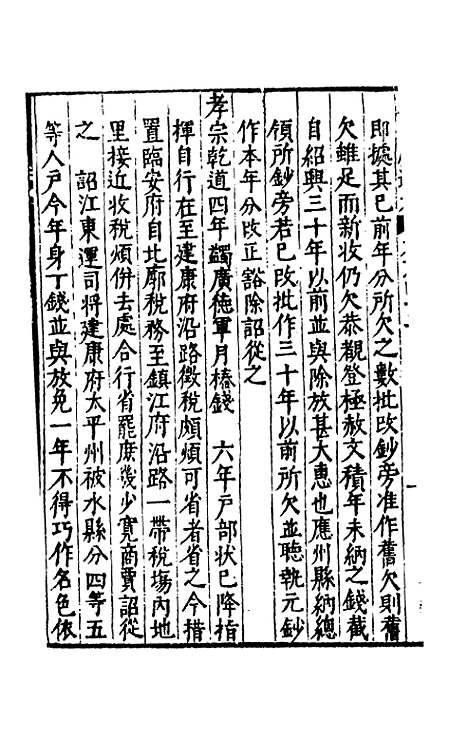 即據其已前年分所欠之數批改鈔旁准作舊欠則舊
欠雖足而新收仍欠恭觀登極赦文積年未納之錢截
自紹興三十年以前並與除放甚大惠也應州縣納總
領所鈔旁若已改批作三十年以前所欠並聽執元鈔
作本年分改正豁除詔從之
孝宗乾道四年蠲廣德軍月樁錢　六年戶部狀已降指
揮自行在至建康府沿路徵稅頗煩可省者省之今措
置臨安府自北廓稅務至鎮江府沿路一帶稅場內地
里接近收稅煩併去處合行省罷庶幾少寬商賈詔從
之　詔江東運司將建康府太平州被水縣分四等五
等人戶今年身丁錢並與放免一年不得巧作名色依